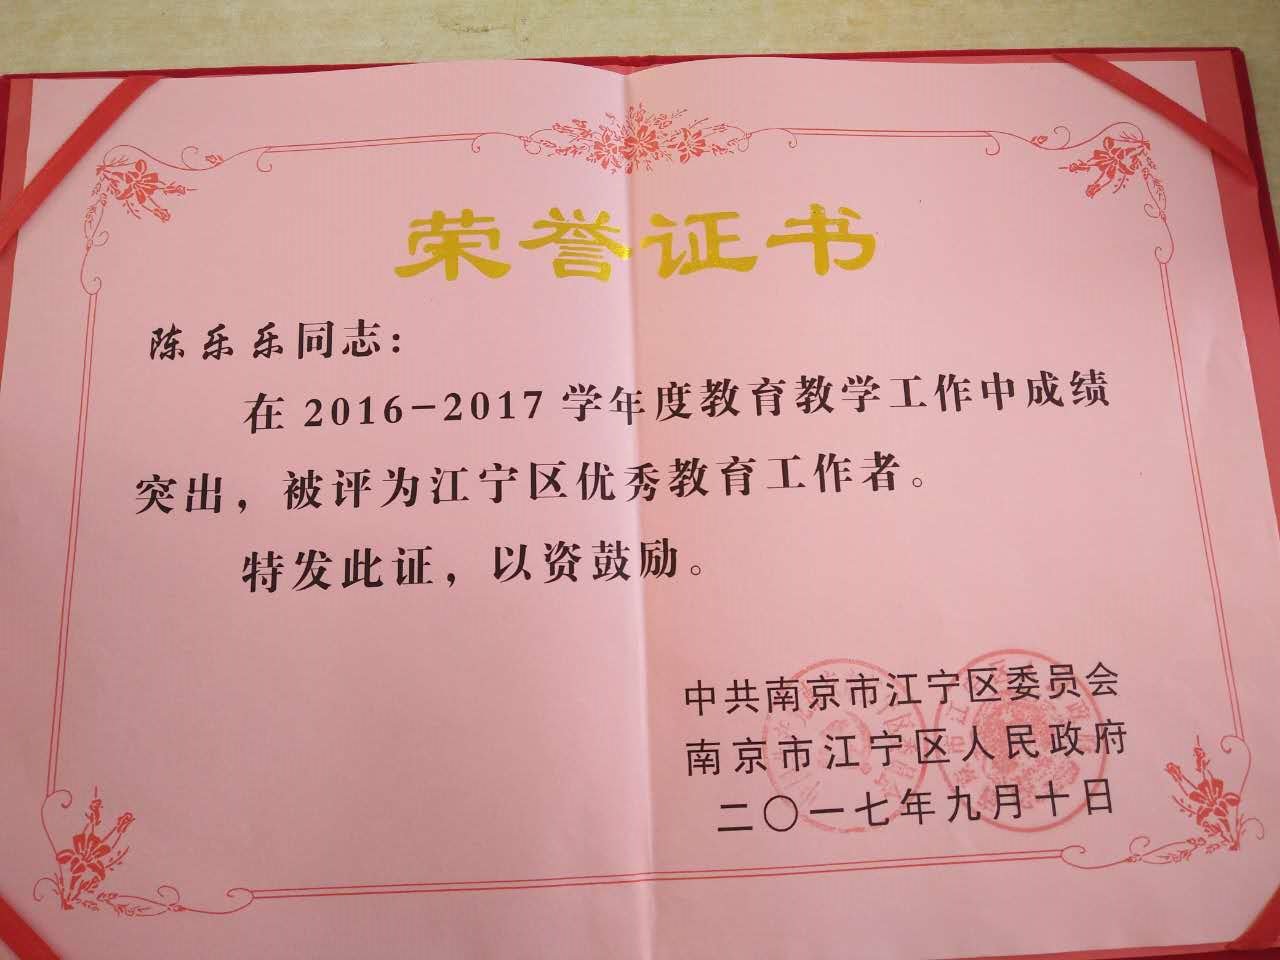 荣誉证书
陈乐乐同志：
在 2016-2017 学年度教育教学工作中成绩
突出，被评为江宁区优秀教育工作者。
特发此证，以资鼓励。
中共南京市江宁区委员会
南京市江宁区人民政府
二〇一七年九月十日